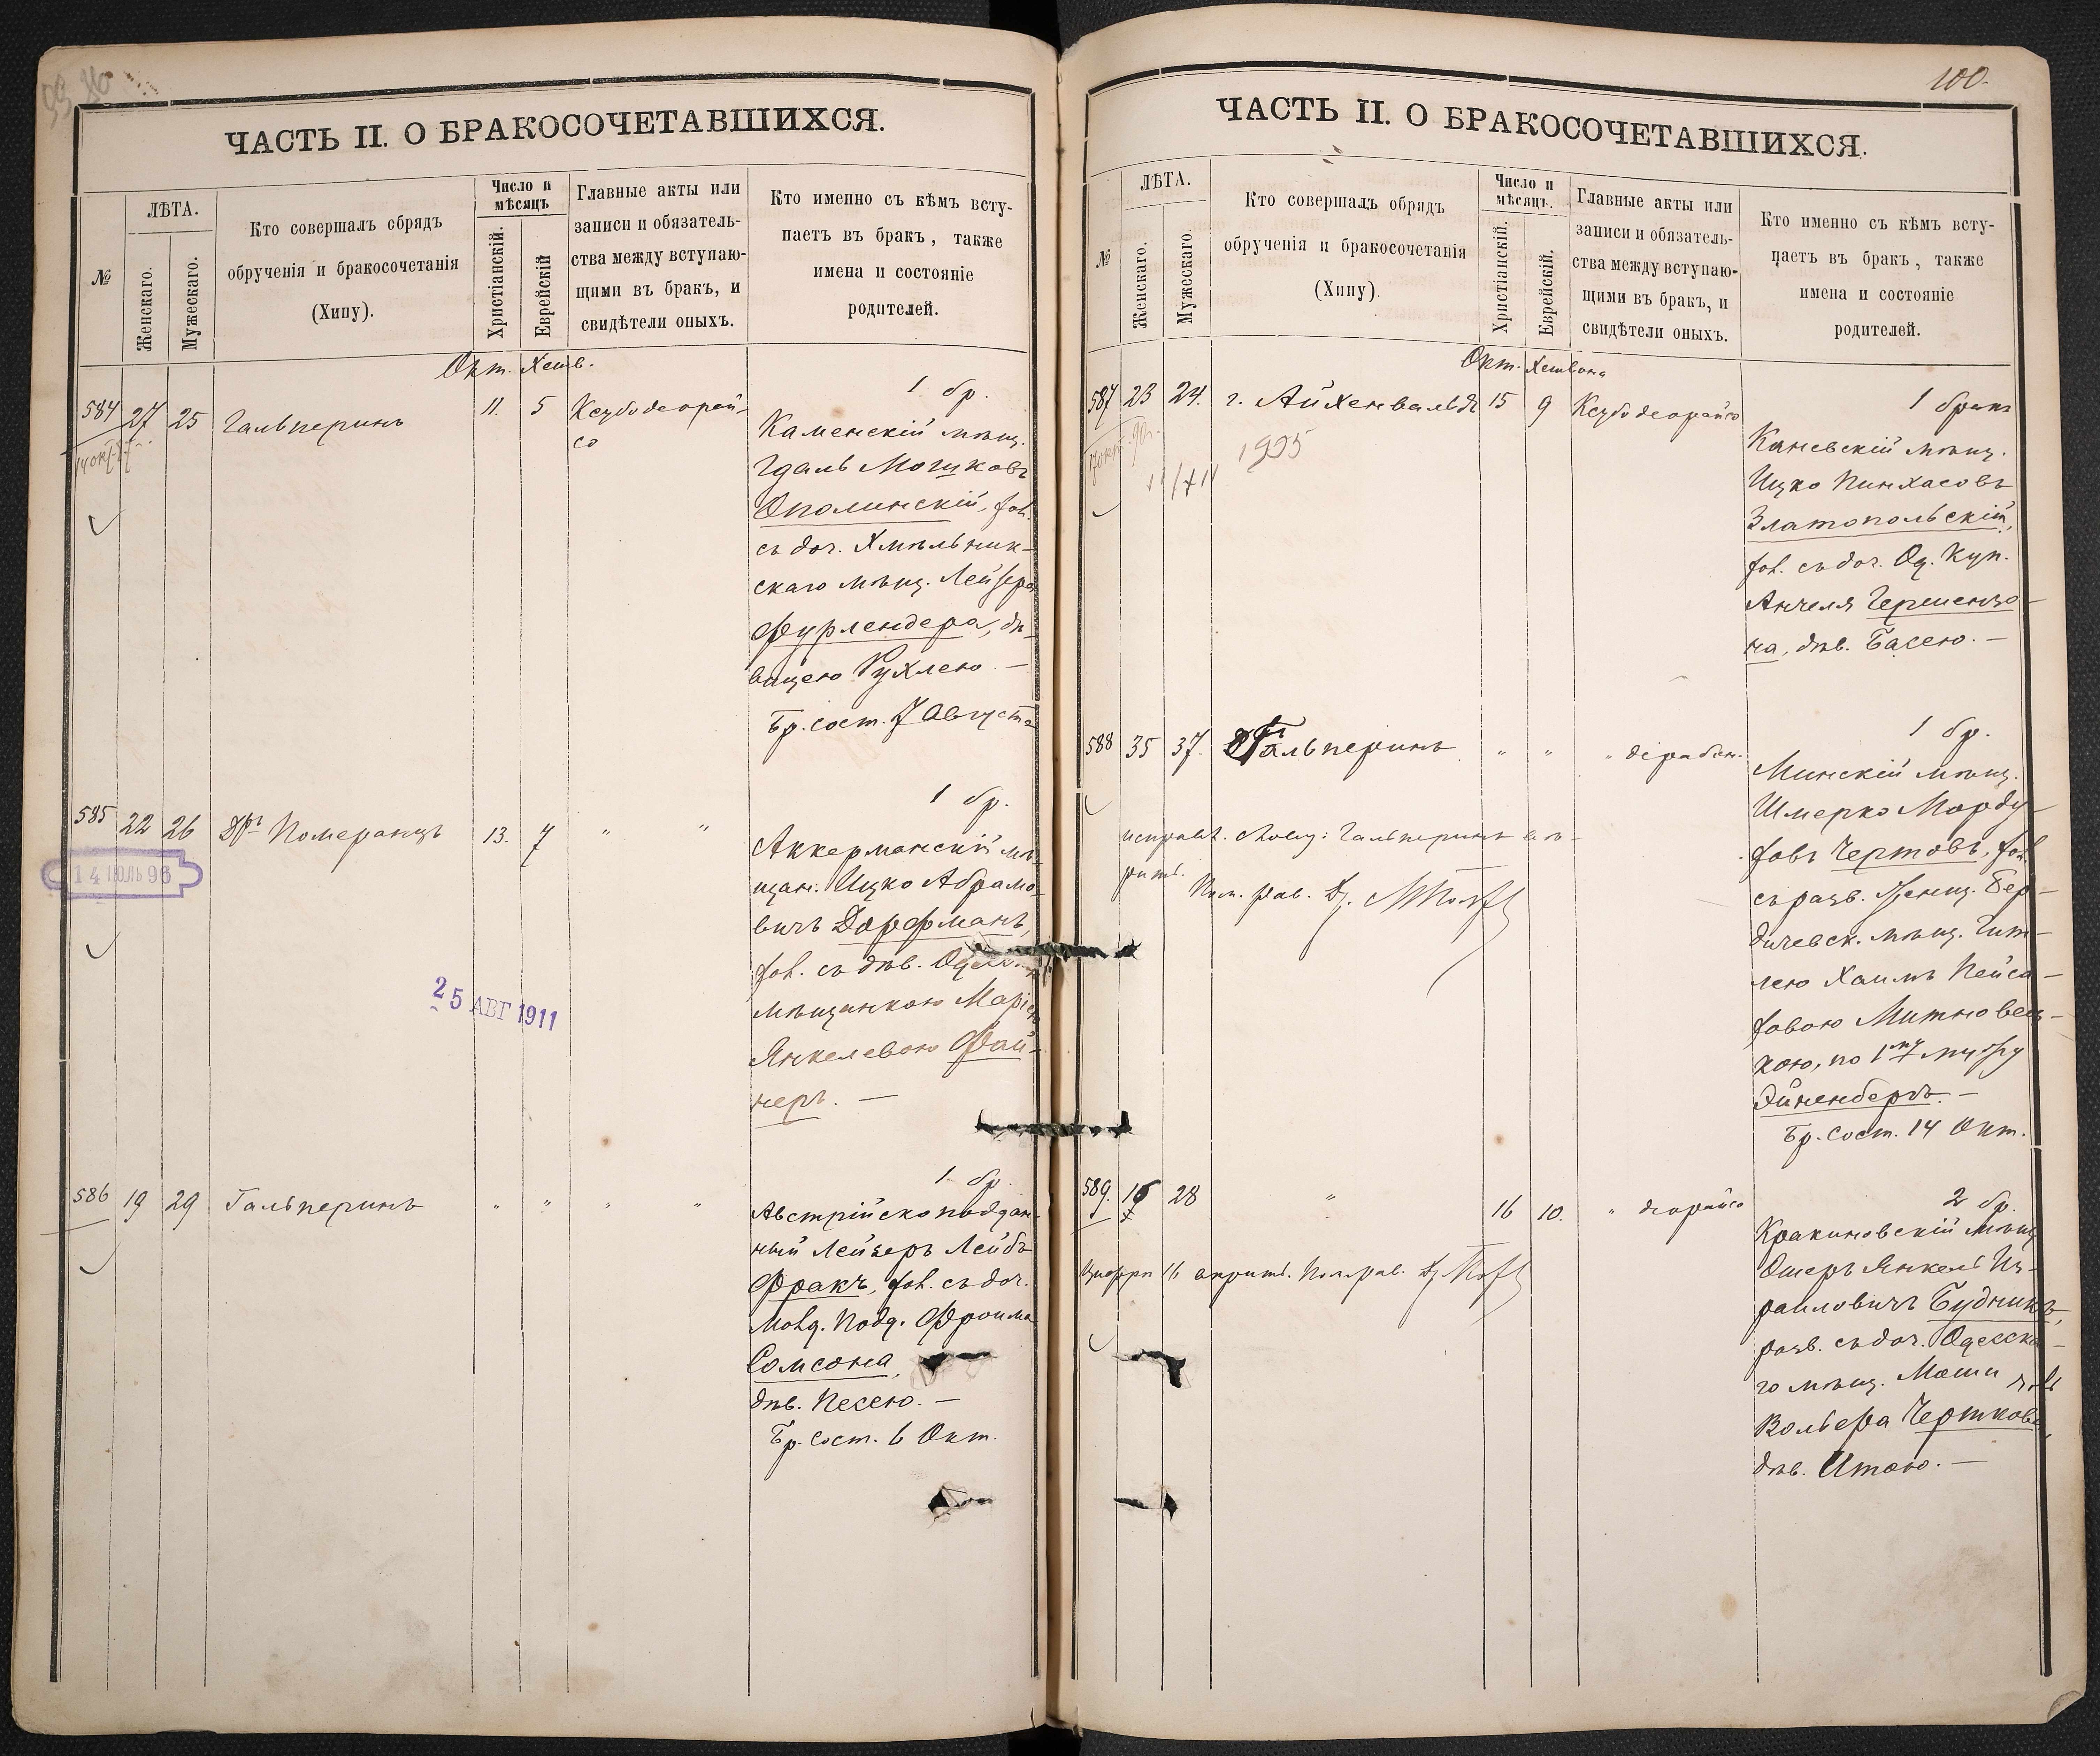 ЧАСТЬ II. О БРАКОСОЧЕТАВШИХСЯ.
№
ЛѢТА.
Женскаго.
Мужескаго.
Кто совершалъ обрядъ
обрученія и бракосочетанія
(Хипу).
Число и
мѣсяцъ
Христіанскій.
Еврейскій
Главные акты или
записи и обязатель-
ства между вступаю-
щими въ бракъ, и
свидѣтели оныхъ.
Кто именно съ кѣмъ всту-
паетъ въ бракъ, также
имена и состояніе
родителей.
Окт. Хешв.
584 27 25 Гальперинъ 11. 5 Ксубо деорай-
со
1 бр.
Каменскій мѣщ.
Гдаль Мошковъ
Ополинскій, хол.
съ доч. Хмѣльник-
скаго мѣщ. Лейзера
Фурлендера, дѣ-
вицею Рухлею. —
Бр. сост. 7 Августа
585 22 26 Др. Померанцъ 13. 7 " "
14 ІЮЛЬ 96
25 АВГ 1911
1 бр.
Аккерманскій мѣ-
щан. Ицко Абрамо-
вичъ Дорфманъ,
хол. съ дѣв.
мѣщанкою Маріею
Янкелевою Фай-
неръ. —
586 19 29 Гальперинъ " " " "
1. бр.
Австрійско поддан-
ный Лейзеръ Лейбъ
Фракъ, хол. съ доч.
Молд. подд. Фроима
Сомсона,
дѣв. Песею. —
Бр. сост. 6 Окт.
100.
ЧАСТЬ II. О БРАКОСОЧЕТАВШИХСЯ.
№
ЛѢТА.
Женскаго.
Мужескаго.
Кто совершалъ обрядъ
обрученія и бракосочетанія
(Хипу).
Число и
мѣсяцъ.
Христіанскій.
Еврейскій.
Главные акты или
записи и обязатель-
ства между вступаю-
щими въ бракъ, и
свидѣтели оныхъ.
Кто именно съ кѣмъ всту-
паетъ въ бракъ, также
имена и состояніе
родителей.
Окт. Хешвона
587 23 24. г. Айхенвальдъ 15 9 Ксубо деорайсо
1905
1 бракъ
Каневскій мѣщ.
Ицко Пинхасовъ
Златопольскій,
хол. съ доч. Од. куп.
Анчеля Гершензо-
на, дѣв. Басею. —
588 35 37. Гальперинъ " " " дерабон.
исправл. слову: Гальперинъ вѣ-
рить.
Пом. рав. Др.
1 бр.
Минскій мѣщ.
Шмерко Морду-
ховъ Чертовъ, хол.
съ разв. женщ. Бер-
дичевск. мѣщ. Гит-
лею Хаимъ Пейса-
ховою Митновец-
кою, по 1му мужу
Эйненбергъ. —
Бр. сост. 14 Окт.
589. 16 28 " 16 10. " деорайсо
Цифрѣ 16 вѣрить. Пом. рав. Др.
2 бр.
Кракиновскій мѣщ.
Ошеръ Янкель Из-
раиловичъ Будникъ,
разв. съ доч. Одесска-
го мѣщ. Моши
Вольфа Черткова,
дѣв. Итою. —